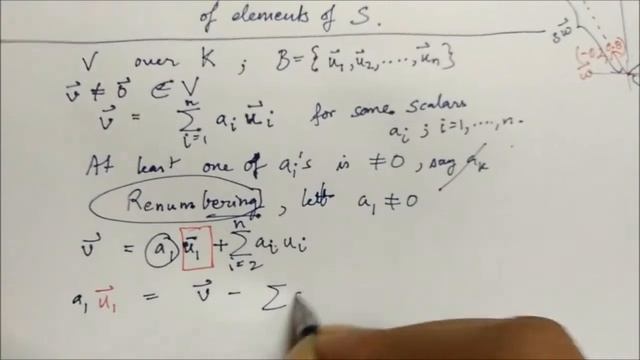 of elements of S.
V over K ; B = { u⃗₁, u⃗₂, ...., u⃗ₙ }
v⃗ ≠ 0⃗ ∈ V
v⃗ = ∑ᵢ₌₁ⁿ aᵢ u⃗ᵢ for some scalars
aᵢ ; i=1,....,n.
At least one of aᵢ's is ≠ 0, say aₖ
Renumbering, let a₁ ≠ 0
v⃗ = a₁ u⃗₁ + ∑ᵢ₌₂ⁿ aᵢ uᵢ
a₁ u⃗₁ = v⃗ - ∑